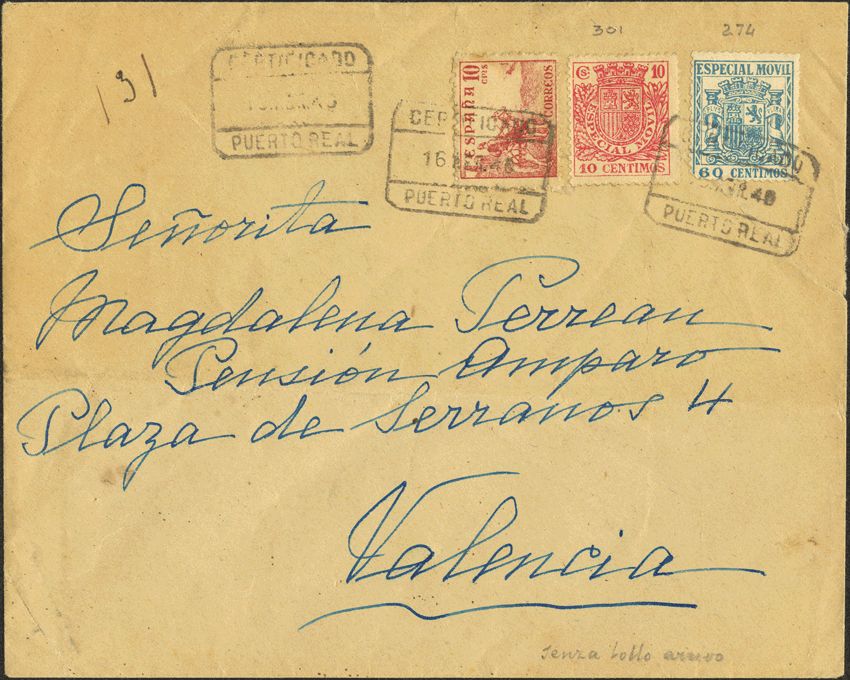 301 274
131
CERTIFICADO
PUERTO REAL
ESPAÑA 10 CTS
CORREOS
CERTIFICADO
16 ABR. 48
PUERTO REAL
Cs 10
ESPECIAL MOVIL
10 CENTIMOS
ESPECIAL MOVIL
60 CENTIMOS
48
PUERTO REAL
Señorita
Magdalena Perrean
Pensión Amparo
Plaza de Serranos 4
Valencia
senza bollo arrivo